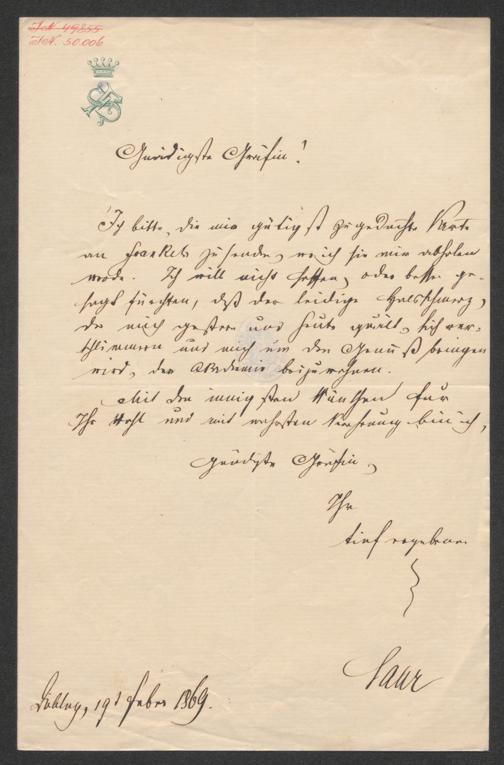 I.N. 49855
I.N. 50.006
Gnädigste Gräfin!
Ich bitte, die mir gütigst zugedachte Karte
an Frankls zu senden, wo ich sie mir abholen
werde. Ich will nicht hoffen, oder besser ge-
sagt fürchten, daß der leidige Halsschmerz,
der mich gestern und heute quält, sich ver-
schlimmern und mich um den Genuß bringen
wird, der Akademie beizuwohnen.
Mit den innigsten Wünschen für
Ihr Wohl und mit wahrster Verehrung bin ich,
gnädigste Gräfin,
Ihr
tief ergebener
Saar
Döbling, 19t Feber 1869.